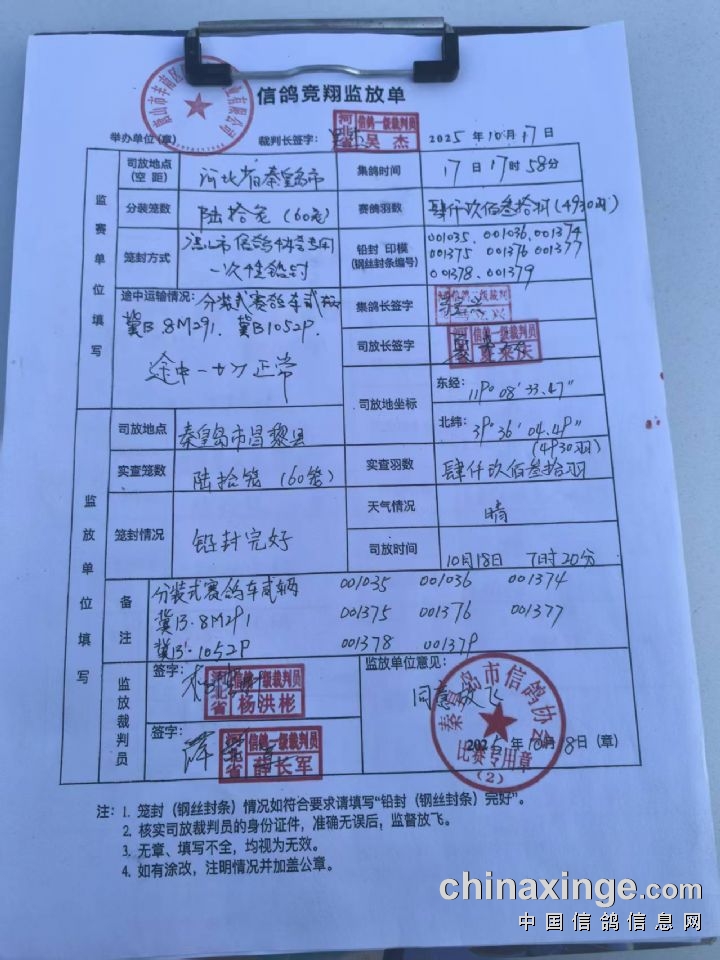 信鸽竞翔监放单
举办单位(章) 裁判长签字: 河北省 信鸽一级裁判员 吴杰 2025年10月17日
唐山市丰南区 业有限公司
监赛单位填写
司放地点(空距) 河北省秦皇岛市 集鸽时间 17日17时58分
分装笼数 陆拾笼(60笼) 赛鸽羽数 肆仟玖佰叁拾羽(4930羽)
笼封方式 唐山市信鸽协会专用一次性铅封 铅封 印模(钢丝封条编号) 001035、001036、001374
001375 001376 001377
001378、001379
途中运输情况: 分装式赛鸽车贰辆
冀B·8M291、冀B1052P.
途中一切正常
集鸽长签字 信鸽一级裁判员
司放长签字 信鸽一级裁判员
司放地坐标 东经: 119° 08′ 33.47″
北纬: 39° 36′ 04.49″
监放单位填写
司放地点 秦皇岛市昌黎县
实查笼数 陆拾笼(60笼) 实查羽数 肆仟玖佰叁拾羽(4930羽)
笼封情况 铅封完好 天气情况 晴
司放时间 10月18日 7时20分
备注 分装式赛鸽车贰辆 001035 001036 001374
冀B·8M291 001375 001376 001377
冀B·1052P 001378 001379
监放裁判员
签字: 河北省 信鸽一级裁判员 杨洪彬
签字: 河北省 信鸽一级裁判员 薛长军
监放单位意见:
同意放飞
秦皇岛市信鸽协会
比赛专用章
(2)
2025年10月18日(章)
注: 1. 笼封(钢丝封条)情况如符合要求请填写“铅封(钢丝封条)完好”。
2. 核实司放裁判员的身份证件,准确无误后,监督放飞。
3. 无章、填写不全,均视为无效。
4. 如有涂改,注明情况并加盖公章。
chinaxinge.com
中国信鸽信息网